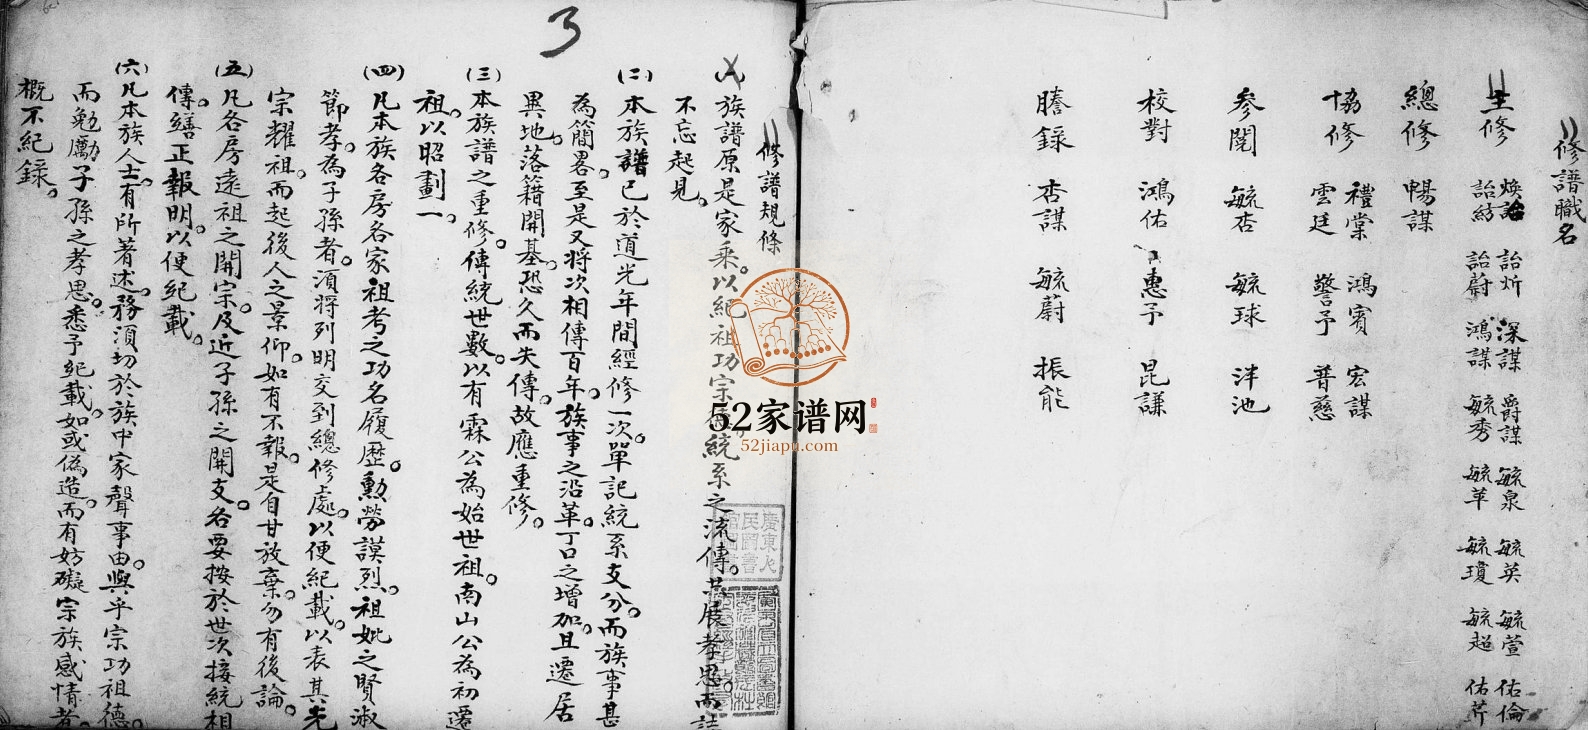 修譜職名
主修 煥詒 詒炘 深謀 爵謀 毓泉 毓英 毓萱 佑倫
詒紡 詒蔚 鴻謀 毓秀 毓苹 毓瓊 毓超 佑芹
總修 暢謀
協修 禮棠 鴻賓 宏謀
雲廷 警予 普慈
參閱 毓杏 毓球 泮池
校對 鴻佑 惠予 昆謙
謄錄 杏謀 毓蔚 振能
3
修譜規條
族譜原是家乘。以紀祖功宗 統系之流傳。共展孝思而誌
不忘起見。
(二)本族譜已於道光年間經修一次。單記統系支分。而族事甚
為簡畧。至是又將次相傳百年。族事之沿革。丁口之增加。且遷居
異地。落籍開基。恐久而失傳。故應重修。
(三)本族譜之重修。傳統世數。以有霖公為始世祖。南山公為初遷
祖。以昭劃一。
(四)凡本族各房各家祖考之功名履歷。勳勞謨烈。祖妣之賢淑
節孝。為子孫者。須將列明交到總修處。以便紀載。以表其光
宗耀祖。而起後人之景仰。如有不報。是自甘放棄。勿有後論。
(五)凡各房遠祖之開宗。及近子孫之開支。各要按於世次接統相
傳。繕正報明。以便紀載。
(六)凡本族人士。有所著述。務須切於族中家聲事由。與乎宗功祖德。
而勉勵子孫之孝思。悉予紀載。如或偽造。而有妨礙宗族感情者。
概不紀錄。
52家谱网
52jiapu.com